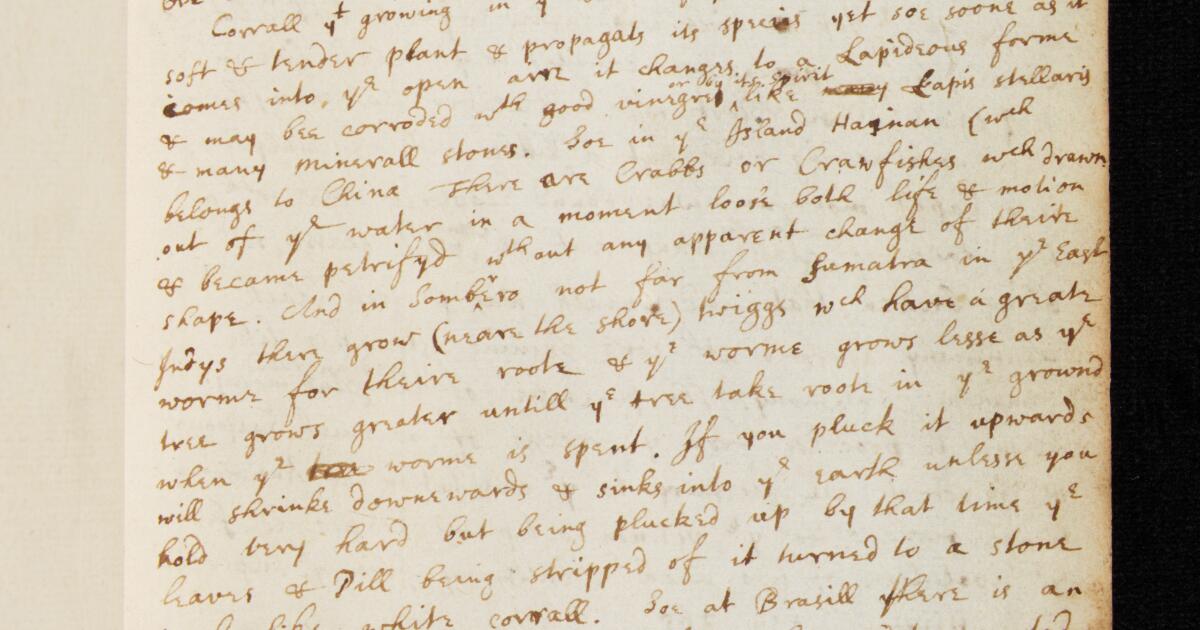 Corrall yt growing in y
soft & tender plant & propagats its specis yet soe soone as it
comes into ye open aire it changes to a Lapideous forme
or by its spirit
& may bee corroded wth good vinegre like Lapis stellaris
& many minerall stones. Soe in ye Island Hainan (wch
belongs to China There are Crabbs or Crawfishes wch drawn
out of ye water in a moment loose both life & motion
& became petrifyd wthout any apparent change of theire
shape. And in Sombrero not far from Sumatra in ye East
Indys there grow (neare the shore) twiggs wch have a greate
worme for theire roote & ye worme grows lesse as ye
tree grows greater untill ye tree take roote in ye grownd
when ye worme is spent. If you pluck it upwards
will shrinke downewards & sinks into ye earth unlesse you
hold very hard but being plucked up by that time ye
leaves & Pill being stripped of it turned to a stone
like white corrall. Soe at Brasill there is an